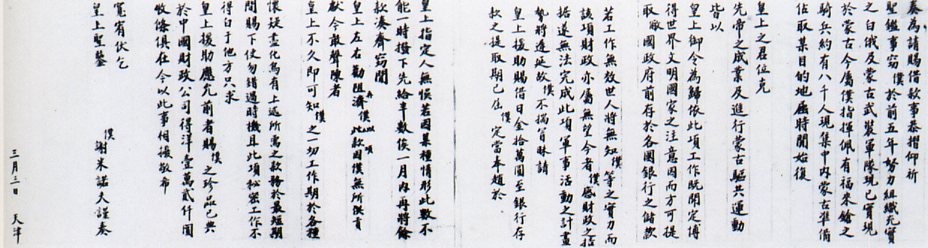 奏為請賜借款事恭摺仰祈
聖鑑事竊僕於前五年努力組織充實
之白俄及蒙古武裝軍隊現已實現
於蒙古今屬僕指揮佩有福來鎗之
騎兵約有八千人現集中內蒙古準備
佔取某目的地屆時開始復
皇上之君位克
先帝之成業及進行蒙古驅共運動
皆以
皇上御令為歸依此項工作既開定博
得世界文明國家之注意因而方可提
取敝國政府前存於各國銀行之儲款
若工作無效世人將無知僕等之實力而
該項財政亦屬無望今者僕感財政之拮
据遂無法完成此項軍事活動之計畫
勢將遷延故僕不揣冒昧請
皇上援助賜借日金拾萬圓至銀行存
款之提取期已佔僕定當本趨於
皇上指定人無悞若因某種情形此數不
能一時撥下先給半數俟一月內再將餘
款湊齊竊聞
皇上左右勸阻濟僕此款因僕無所供貢
獻今敢聲陳者
皇上不久即可知僕之一切工作期於各種
懷疑盡化烏有上述所需之款務於最短期
間賜下使勿錯過時機且此項秘密工作不
得白于他方只求
皇上援助應允前者賜僕之珍品已典
於中國財政公司得洋壹萬貳仟圓
收條俱在今以此事相擾敬布
寬宥伏乞
皇上聖鑒
僕謝米諾夫謹奏
三月三日 天津